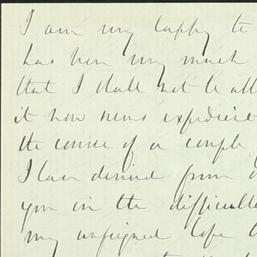 I am very happy to
has been very much
that I shall not be abl
it now seems expedient
the course of a couple
I have derived from
you in the difficult
my unfeigned hope